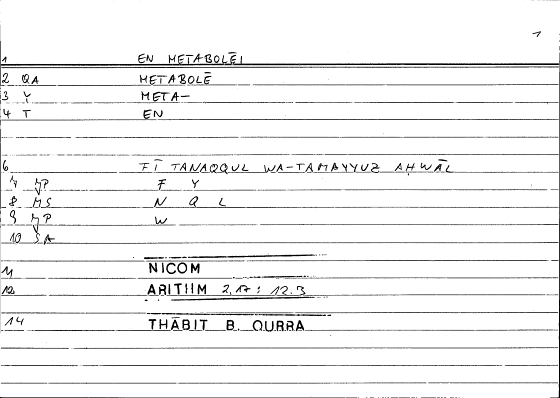 1
1 EN METABOLĒI
2 QA METABOLĒ
3 Y META-
4 T EN
6 FĪ TANAQQUL WA-TAMAYYUZ AḤWĀL
7 JP F Y
8 MS N Q L
9 MP W
10 SA
11 NICOM
12 ARITIIM 2,17 : 12.3
14 THĀBIT B. QURRA